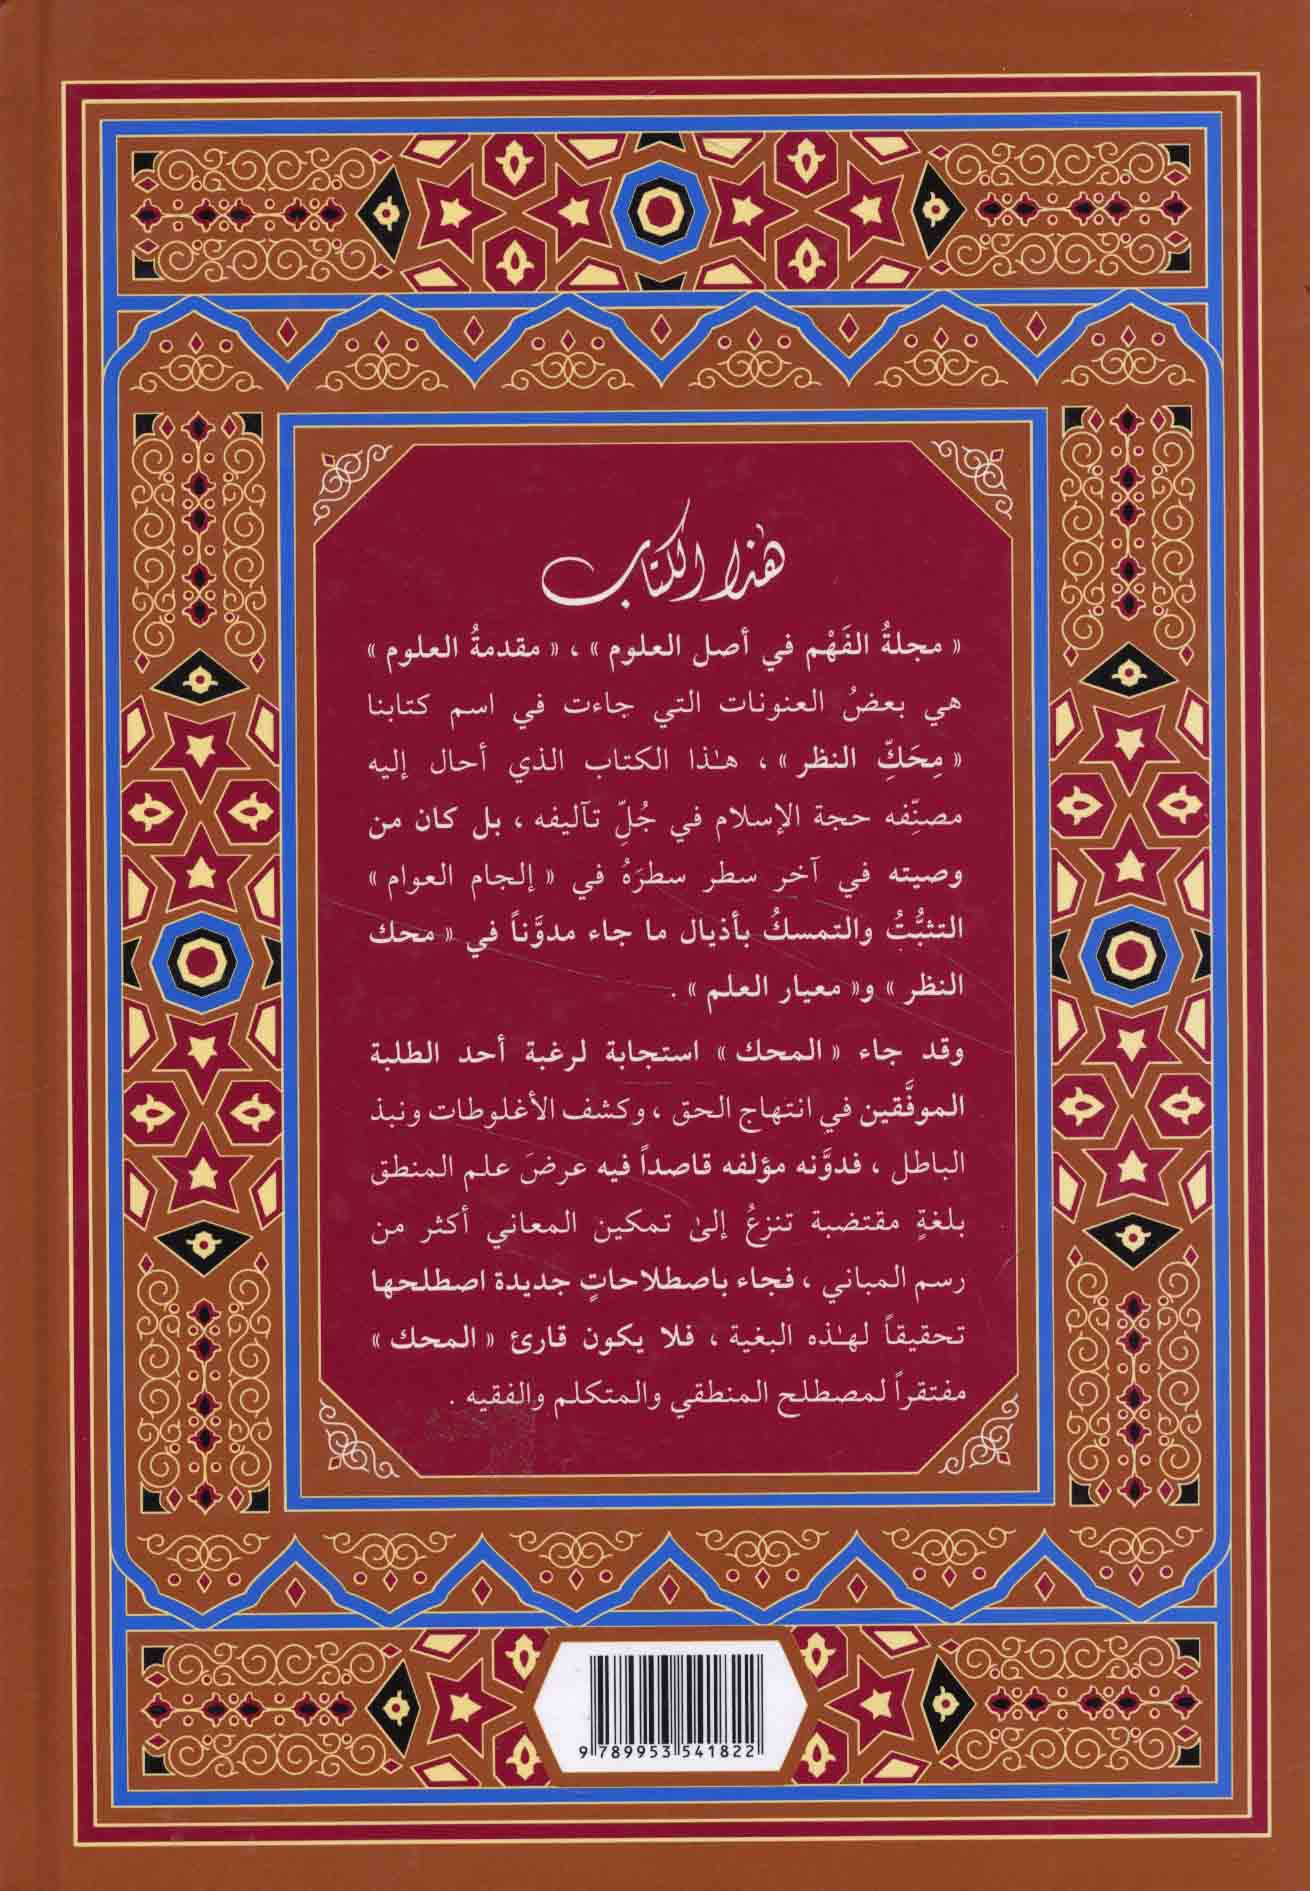 هذا الكتاب
« مجلةُ الفَهْم في أصل العلوم » ، « مقدمةُ العلوم »
هي بعضُ العنونات التي جاءت في اسم كتابنا
« مِحَكِّ النظر » ، هـٰذا الكتاب الذي أحال إليه
مصنِّفه حجة الإسلام في جُلِّ تآليفه ، بل كان من
وصيته في آخر سطر سطرَهُ في « إلجام العوام »
التثبُّتُ والتمسكُ بأذيال ما جاء مدوَّناً في « محك
النظر » و« معيار العلم » .
وقد جاء « المحك » استجابة لرغبة أحد الطلبة
الموفَّقين في انتهاج الحق ، وكشف الأغلوطات ونبذ
الباطل ، فدوَّنه مؤلفه قاصداً فيه عرضَ علم المنطق
بلغةٍ مقتضبة تنزعُ إلىٰ تمكين المعاني أكثر من
رسم المباني ، فجاء باصطلاحاتٍ جديدة اصطلحها
تحقيقاً لهـٰذه البغية ، فلا يكون قارئ « المحك »
مفتقراً لمصطلح المنطقي والمتكلم والفقيه .
9 789953 541822